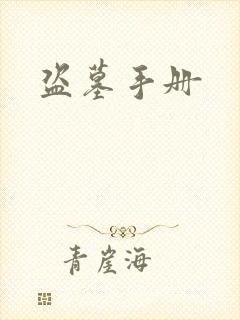 盗墓手册
青崖海